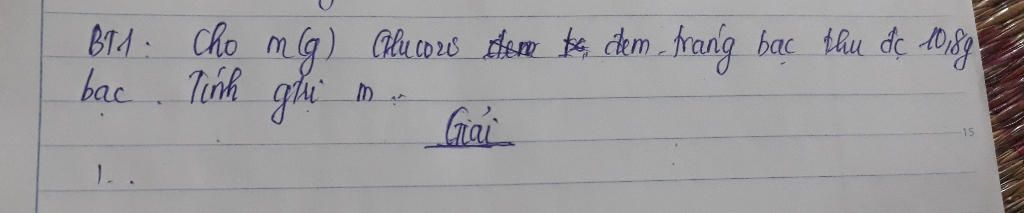 BT1: Cho m(g) Glucozơ đem tráng bạc thu đc 10,8g
bạc. Tính gtri m..
Giải
1...
15